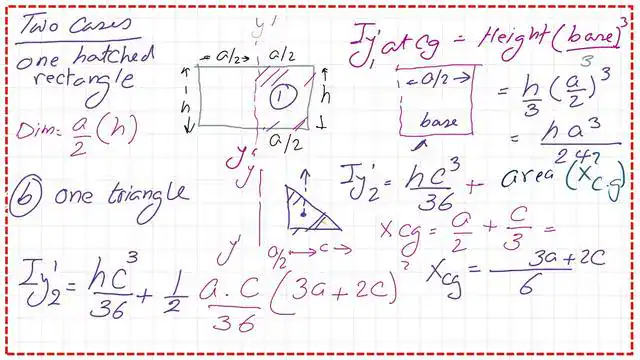 Two Cases
one hatched
rectangle
Dim = a/2 (h)
y'
a/2 a/2
h
1
h
a/2
y'
Iy'1 at Cg = Height (base)^3 / 3
a/2
base
= h/3 (a/2)^3
= ha^3 / 24
b one triangle
y
y'
a/2 c
Iy'2 = hc^3/36 + area (Xc.g)^2
Xcg = a/2 + c/3 =
Xcg = 3a+2c / 6
Iy'2 = hc^3/36 + 1/2 a.c/36 (3a+2c)^2